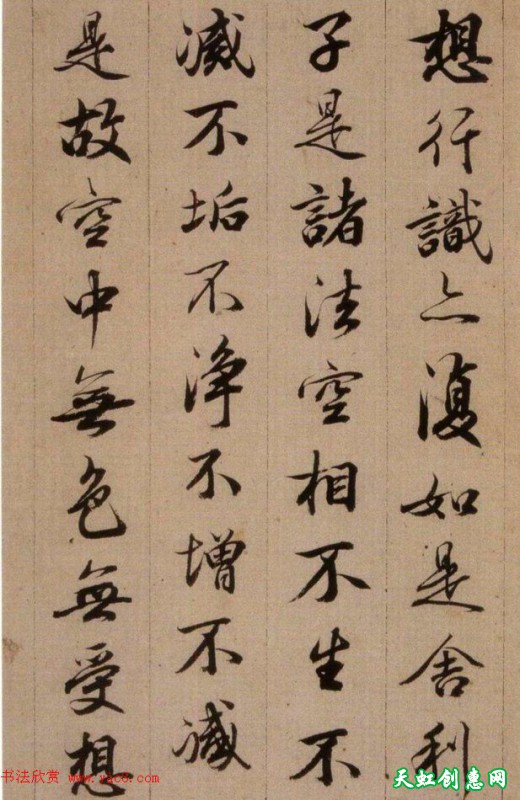 想行識亦復如是舍利
子是諸法空相不生不
滅不垢不淨不增不減
是故空中無色無受想
书法欣赏
天虹创惠网